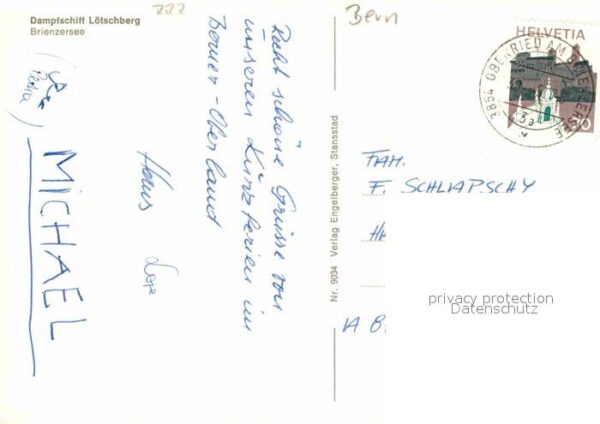 Dampfschiff Lötschberg
Brienzersee
Recht schöne Grüsse von
unseren Kurzferien im
Berner-Oberland
Hans
MICHAEL
Nr. 9034 Verlag Engelberger, Stansstad
Bern
HELVETIA
3854 OBERRIED AM BRIENZERSEE
FAM.
F. SCHLAPSCHY
privacy protection
Datenschutz